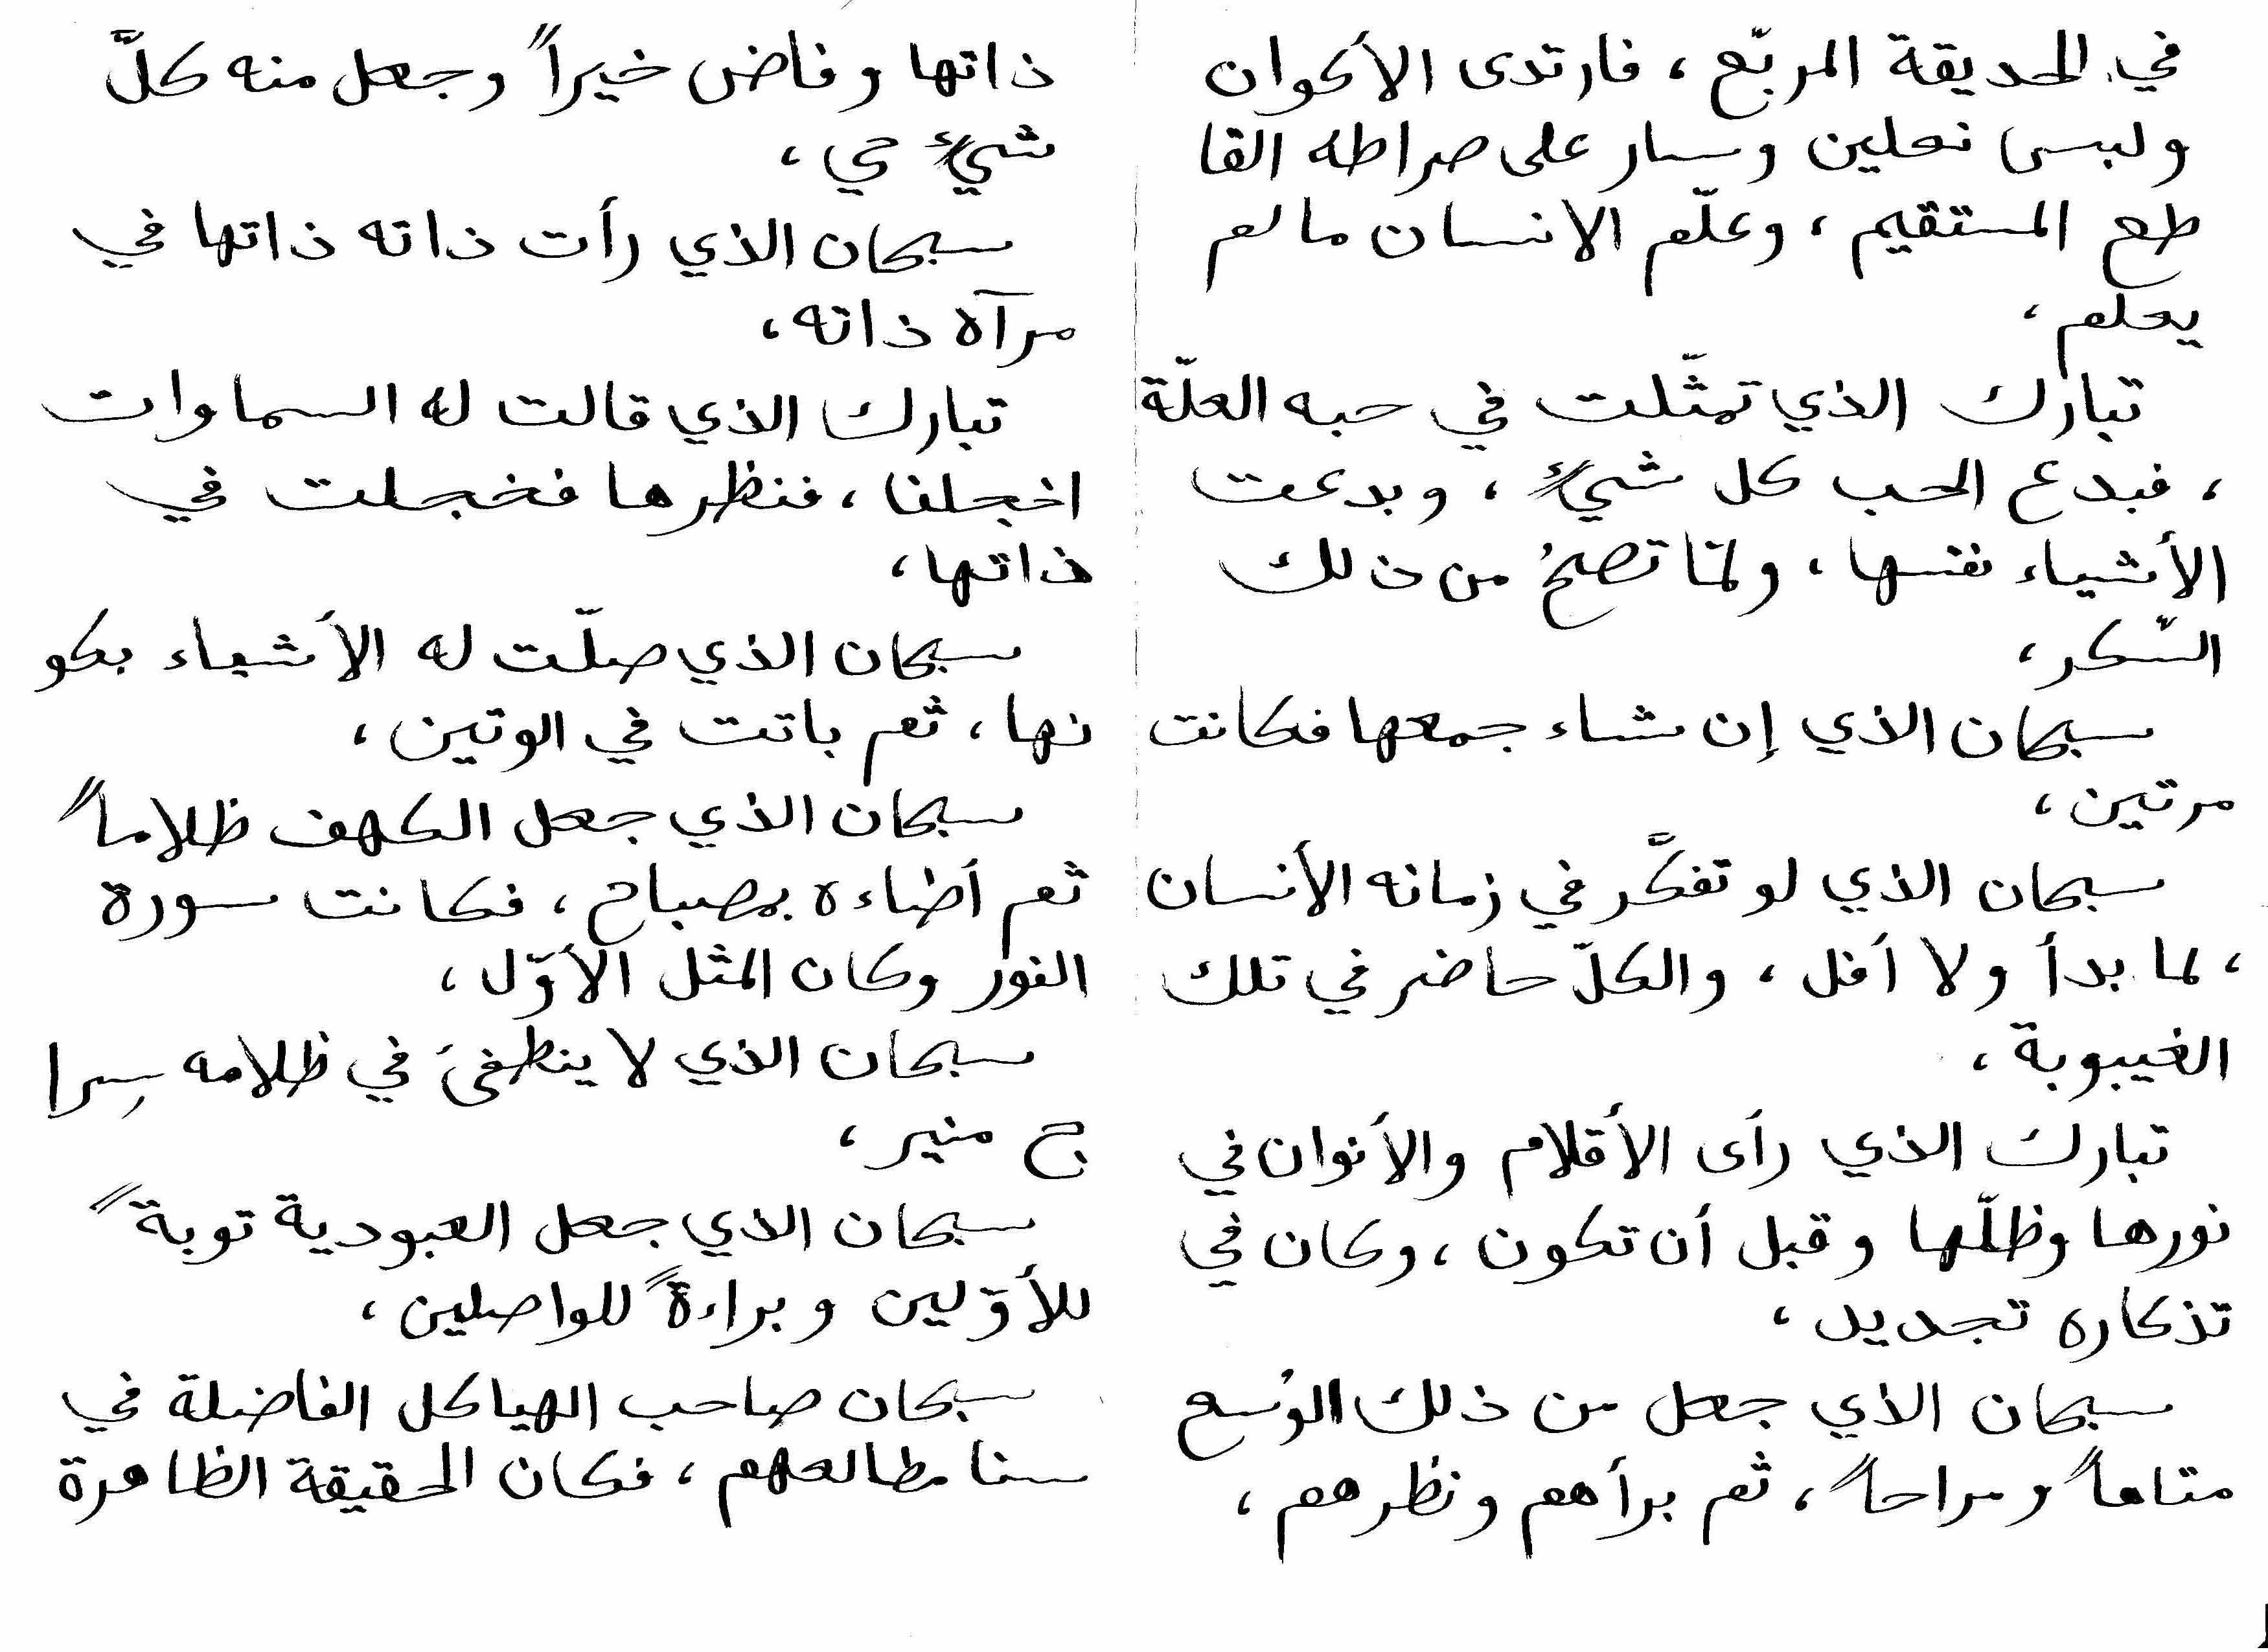 في الحديقة المربّع ، فارتدى الأكوان
ولبس نعلين وسار على صراطه القا
طع المستقيم ، وعلّم الانسان ما لم
يعلم ،
تبارك الذي تمثّلت في حبه العلّة
، فبدع الحب كل شيءٍ ، وبدعت
الأشياء نفسها ، ولمّا تصحُ من ذلك
السّكر ،
سبحان الذي إن شاء جمعها فكانت
مرتين ،
سبحان الذي لو تفكّر في زمانه الأنسان
، لما بدأ ولا أفل ، والكلّ حاضر في تلك
الغيبوبة ،
تبارك الذي رأى الأقلام والأنوان في
نورها وظلّها وقبل أن تكون ، وكان في
تذكاره تجديد ،
سبحان الذي جعل من ذلك الوُسع
متاهاً ومراحاً ، ثم برأهم ونظرهم ،
ذاتها وفاض خيراً وجعل منه كلَّ
شيءٍ حي ،
سبحان الذي رأت ذاته ذاتها في
مرآة ذاته ،
تبارك الذي قالت له السماوات
اخجلنا ، فنظرها فخجلت في
ذاتها ،
سبحان الذي صلّت له الأشياء بكو
نها ، ثم باتت في الوتين ،
سبحان الذي جعل الكهف ظلاماً
ثم أضاءه بمصباح ، فكانت سورة
النور وكان المثل الأوّل ،
سبحان الذي لا ينطفئ في ظلامه سِرا
ج منير ،
سبحان الذي جعل العبودية توبةً
للأوّلين وبراءةً للواصلين ،
سبحان صاحب الهياكل الفاضلة في
سنا مطالعهم ، فكان الحقيقة الظاهرة